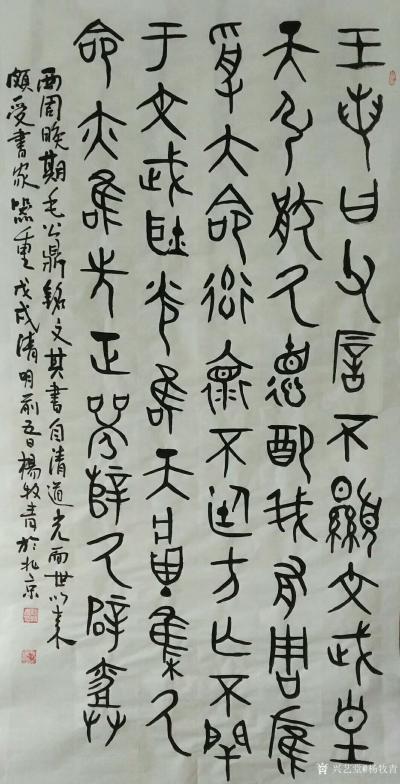 王若曰父厝不顯文武皇
天弘猒厥德配我有周膺
受大命率懷不廷方亡不閈
于文武耿光隹天將集厥
命亦隹先正襄辥厥辟
西周晚期毛公鼎銘文其書自清道光面世以來
頗受書家器重戊戌清明前五日楊牧青於北京
兴艺堂@杨牧青